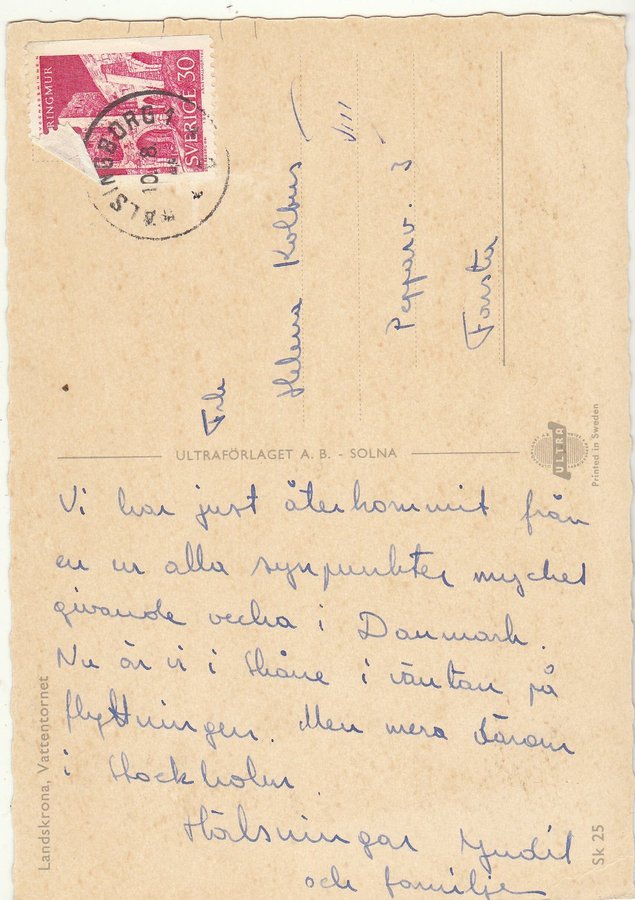 RINGMUR
SVERIGE 30
HÄLSINGBORG 1
10.8
Frk
Helena Kolbus
VIII
Pepparv. 3
Farsta
ULTRAFÖRLAGET A. B. - SOLNA
ULTRA
Printed in Sweden
Vi har just återkommit från
en ur alla synpunkter mycket
givande vecka i Danmark.
Nu är vi i Skåne i väntan på
flyttningen. Men mera därom
i Stockholm.
Hälsningar Judit
och familje
Landskrona, Vattentornet
Sk 25